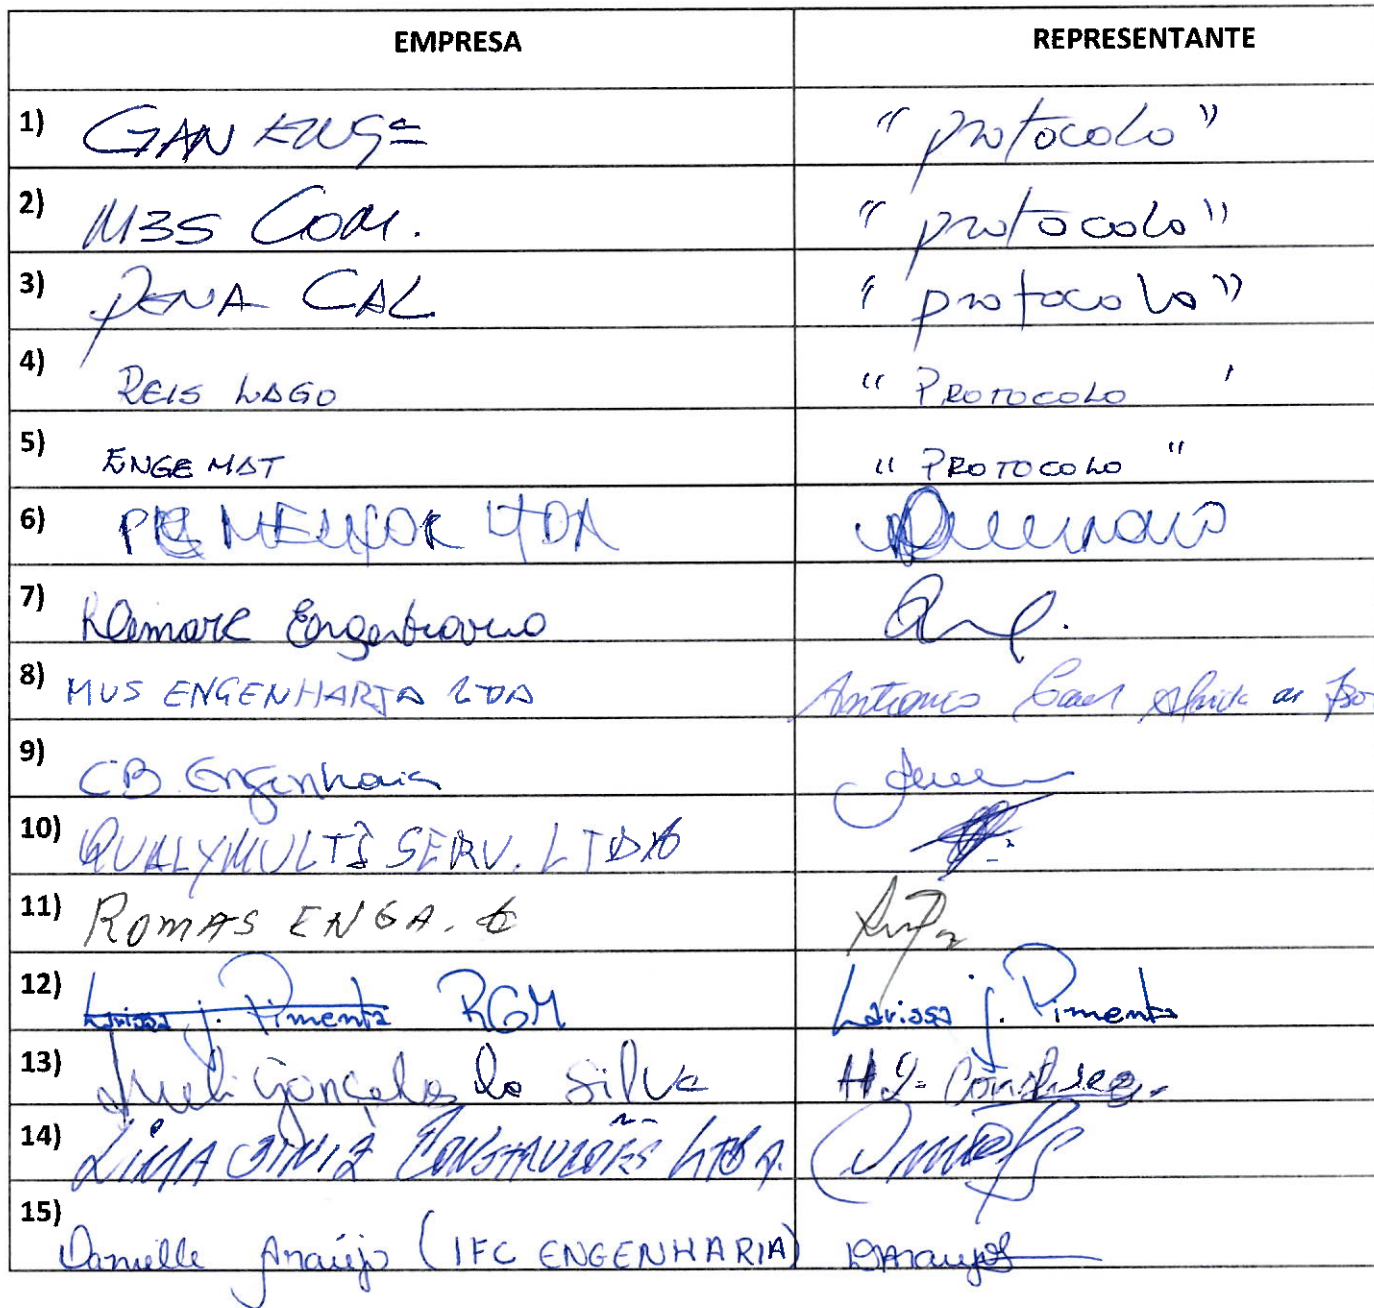 EMPRESA REPRESENTANTE
1) GAN ENGª "protocolo"
2) M3S COM. "protocolo"
3) PENA CAL "protocolo"
4) REIS LAGO "PROTOCOLO '
5) ENGEMAT "PROTOCOLO"
6) MELHOR LTDA
7) Engenharia
8) MVS ENGENHARIA LTDA Antonio
9) CB Engenharia
10) QUALYMULTI SERV. LTDA
11) ROMAS ENGA.
12) Larissa J. Pimenta RGM Larissa J. Pimenta
13) Gonçalves da Silva
14) LIMA CONSTRUÇÕES LTDA.
15) Danielle Araújo (IFC ENGENHARIA) DAraujo